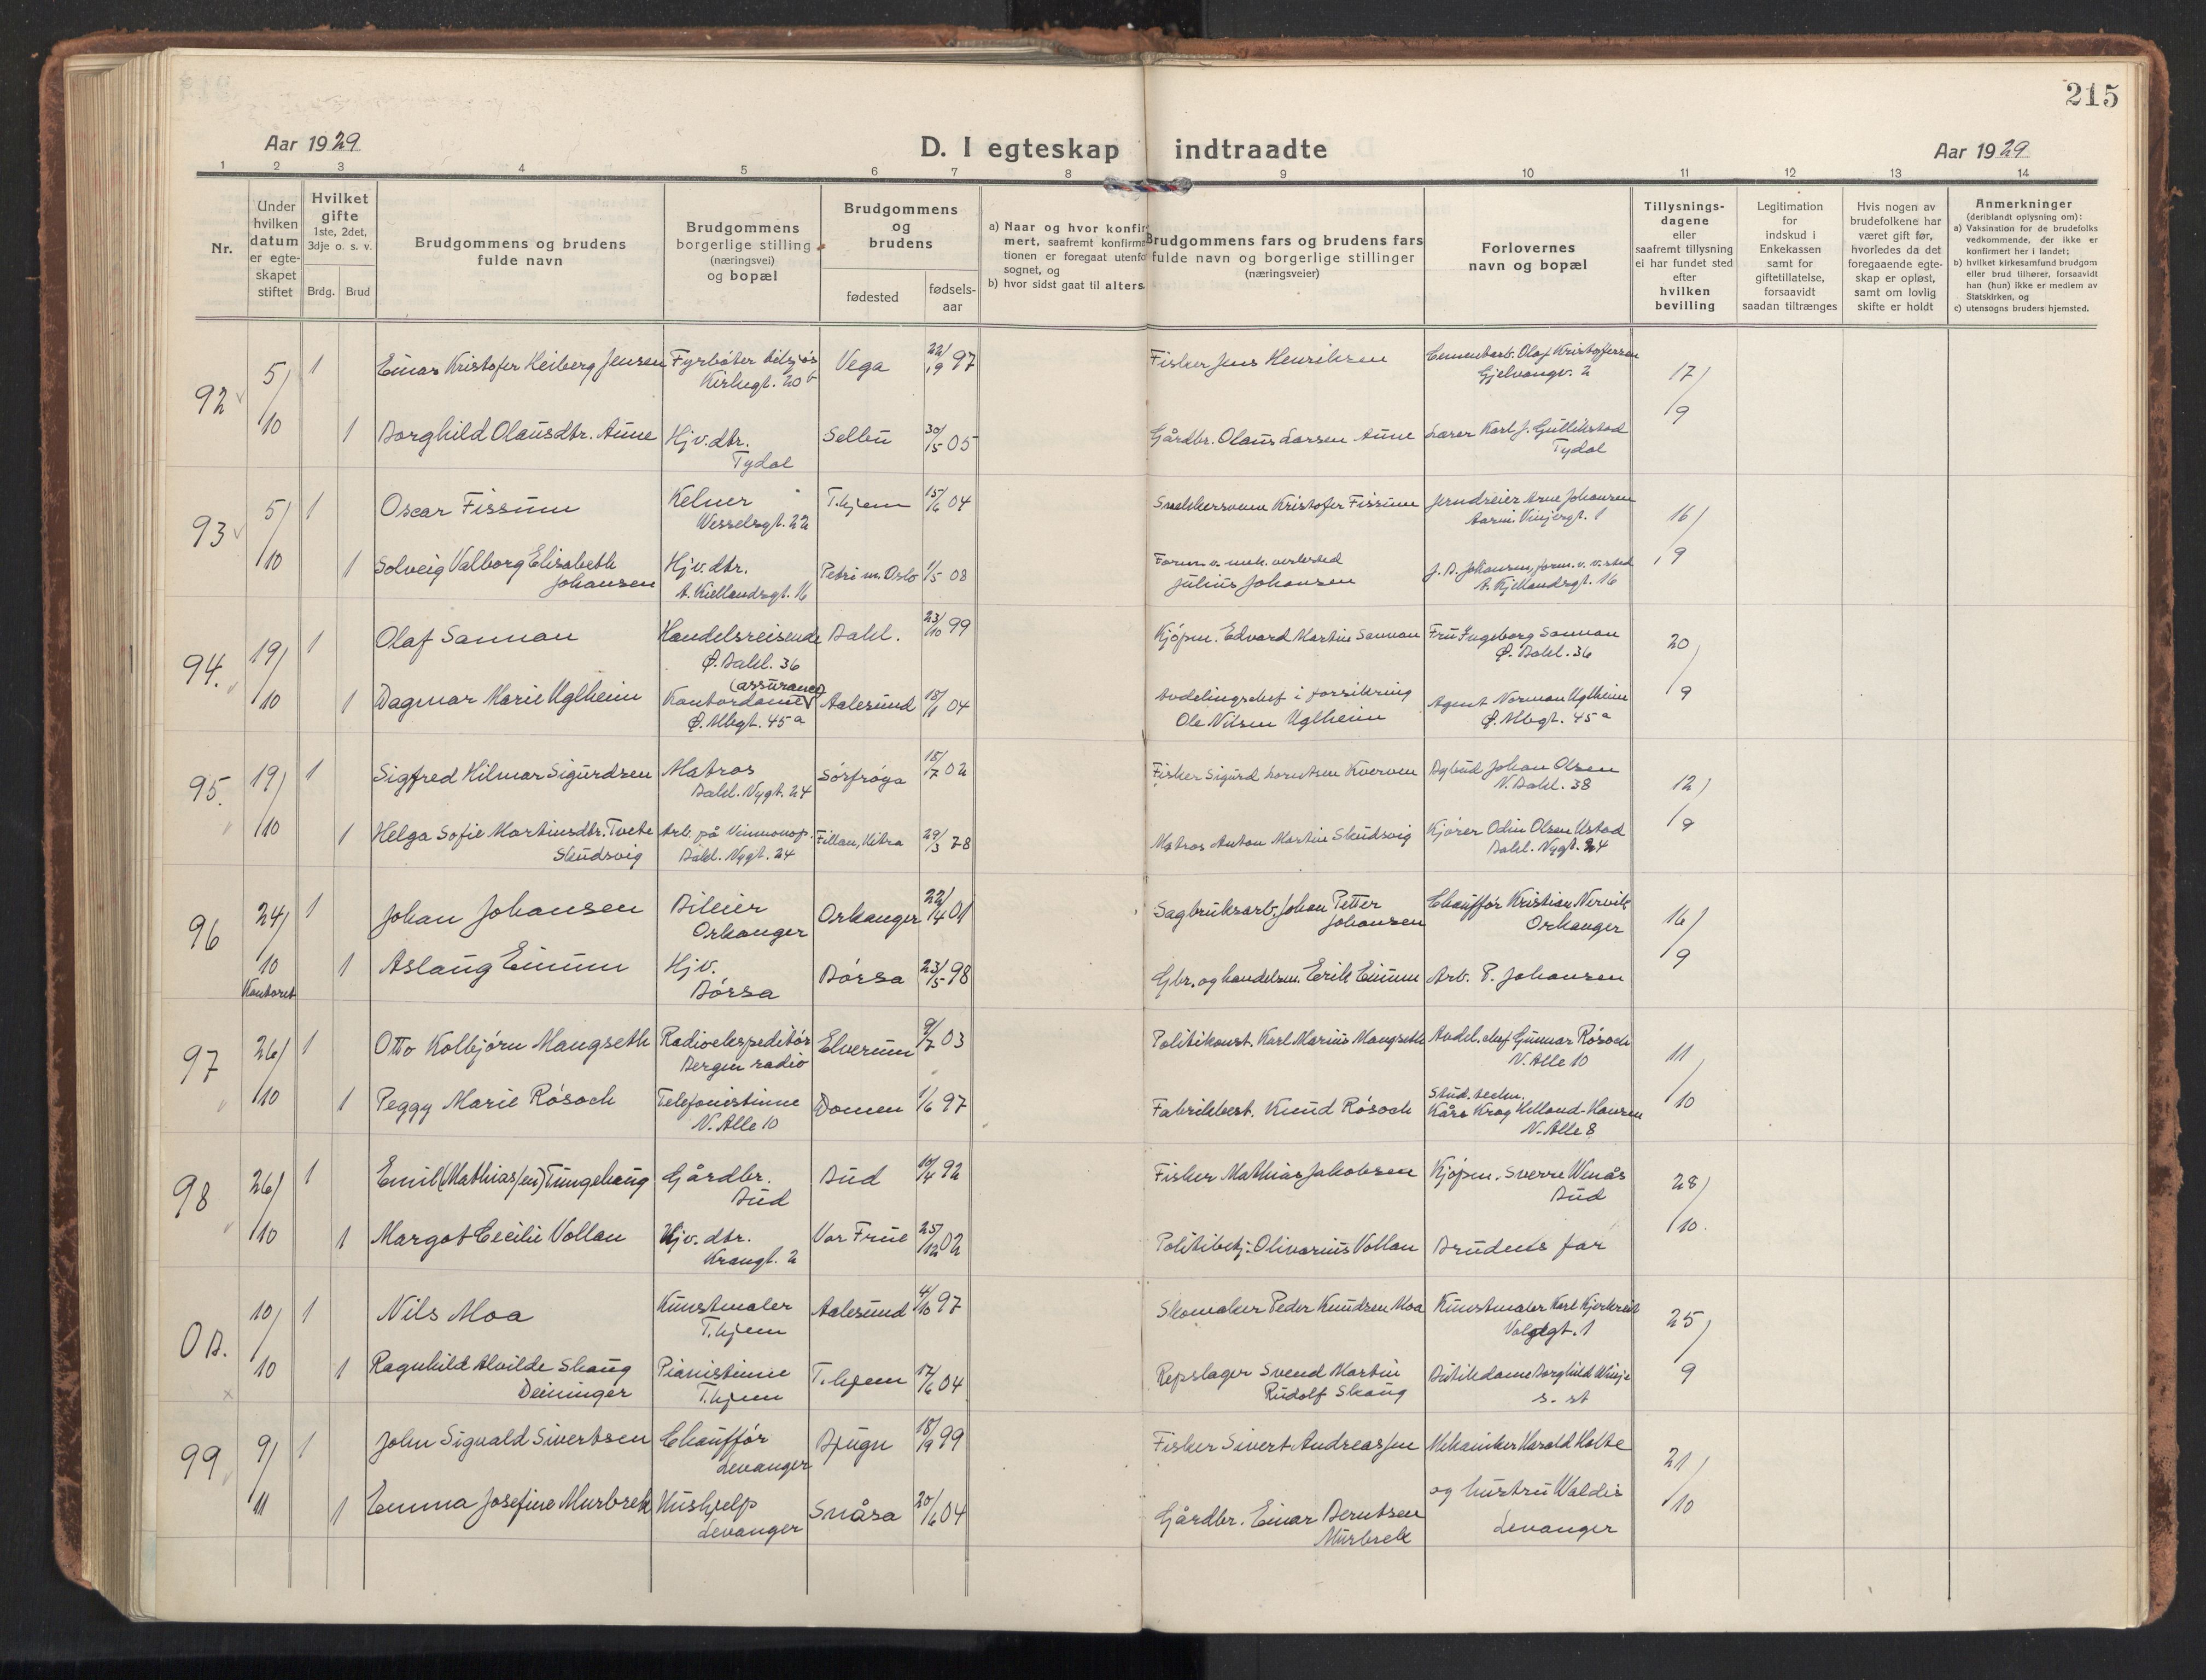 215
Aar 1929
D. I egteskap indtraadte
Aar 1929
1 2 3 4 5 6 7 8 9 10 11 12 13 14
Nr.
Under
hvilken
datum
er egte-
skapet
stiftet
Hvilket
gifte
1ste, 2det,
3dje o. s. v.
Brdg. Brud
Brudgommens og brudens
fulde navn
Brudgommens
borgerlige stilling
(næringsvei)
og bopæl
Brudgommens
og
brudens
fødested
fødsels-
aar
a) Naar og hvor konfir
mert, saafremt konfirma
tionen er foregaat utenfo
sognet, og
b) hvor sidst gaat til alters
Brudgommens fars og brudens fars
fulde navn og borgerlige stillinger
(næringsveier)
Forlovernes
navn og bopæl
Tillysnings-
dagene
eller
saafremt tillysning
ei har fundet sted
efter
hvilken
bevilling
Legitimation
for
indskud i
Enkekassen
samt for
giftetillatelse,
forsaavidt
saadan tiltrænges
Hvis nogen av
brudefolkene har
været gift før,
hvorledes da det
foregaaende egte-
skap er opløst,
samt om lovlig
skifte er holdt
Anmerkninger
(deriblandt oplysning om):
a) Vaksination for de brudefolks
vedkommende, der ikke er
konfirmert her i landet;
b) hvilket kirkesamfund brudgom
eller brud tilhører, forsaavidt
han (hun) ikke er medlem av
Statskirken, og
c) utensogns bruders hjemsted.
92 5/10 1 Einar Kristofer Heiberg Jensen Fyrbøter tilsjøs Vega 22/9 97 Fisker Jens Henriksen Cementarb. Olaf Kristoffersen 17/9
Kirkegt. 20 b Gjelvangv. 2
1 Borghild Olausdtr. Aune Hjv. dtr. Selbu 30/5 05 Gårdbr. Olaus Larsen Aune Lærer Karl J. Gullikstad
Tydal Tydal
93 5/10 1 Oscar Fissum Kelner T.hjem 15/6 04 Snekkersvenn Kristofer Fissum Jerndreier Arne Johansen 16/9
Wesselsgt. 22 Vinjesgt. 1
1 Solveig Valborg Elisabeth Hj.v. dtr. Petri m. Oslo 1/5 08 Form. v. mek. verksted J. A. Johansen, form. v. v.sted
Johansen A. Kiellandsgt. 16 Julius Johansen A. Kjellandsgt. 16
94. 19/10 1 Olaf Sannan Handelsreisende Bakl. 23/10 99 Kjøpm. Edvard Martin Sannan Fru Ingeborg Sannan 20/9
Ø. Bakl. 36 Ø. Bakl. 36
(assurance)
1 Dagmar Marie Uglheim Kontordame Aalesund 04 Avdelingschef i forsikring Agent Norman Uglheim
Ø. Mbgt. 45a Ole Nilsen Uglheim Ø. Mbgt. 45a
95. 19/10 1 Sigfred Hilmar Sigurdsen Matros Sørfrøya 18/7 02 Fisker Sigurd Lorntsen Kverven Bybud Johan Olsen 12/9
Bakl. Nygt. 24 N. Bakl. 38
1 Helga Sofie Martinsdtr. Tvete Arb. på Vinmonop. Fillan, Hitra 29/3 78 Matros Anton Martin Skudsvig Kjører Odin Olsen Ustad
Skudsvig Bakl. Nygt. 24 Bakl. Nygt. 24
96 24/10 1 Johan Johansen Bileier Orkanger 22/4 01 Sagbruksarb. Johan Petter Chauffør Kristian Nervik 16/9
Orkanger Johansen Orkanger
Kontoret 1 Aslaug Eimum Hjv. Børsa 23/5 98 Gbr. og handelsm. Erik Eimum Arb. P. Johansen
Børsa
97 26/10 1 Otto Kolbjørn Mangseth Radioekspeditør Elverum 9/7 03 Politikonst. Karl Marius Mangseth Avdel. chef Gunnar Røsoch 11/10
Bergen radio N. Alle 10
1 Peggy Marie Røsoch Telefonistinne Domen 1/6 97 Fabrikbest. Knud Røsoch Stud. techn.
N. Alle 10 Kåre Krag Helland-Hansen
N. Alle 8
98 26/10 1 Emil (Mathiassen) Tungehaug Gårdbr. Bud 10/4 92 Fisker Mathias Jakobsen Kjøpm. Sverre Vinås 28/10.
Bud Bud
1 Margot Cecilie Vollan Hjv. dtr. Vor Frue 25/12 02 Politibetj. Olivarius Vollan Brudens far
Krangt. 2
0 B. 10/10 1 Nils Moa Kunstmaler Aalesund 4/10 97 Skomaker Peder Knudsen Moa Kunstmaler Karl Kjerkreit 25/9
T.hjem Voldgt. 1
1 Ragnhild Alvilde Skaug Pianistinne T.hjem 17/6 04 Repslager Svend Martin Butikdame Borghild Vinje
Deininger T.hjem Rudolf Skaug s. st
99 9/11 1 John Sigvald Sivertsen Chauffør Bjugn 18/9 99 Fisker Sivert Andreassen Mekaniker Harald Holte 21/10
Levanger
1 Emma Josefine Murbrek Hushjelp Snåsa 20/6 04 Gårdbr. Einar Berntsen og hustru Valdis
Levanger Murbrek Levanger